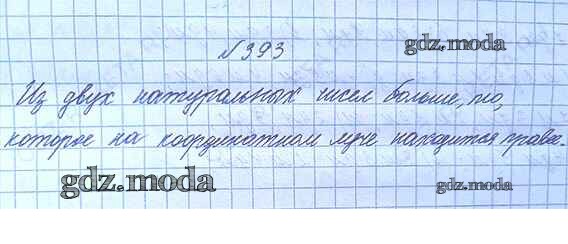 №393
gdz.moda
Из двух натуральных чисел больше, то,
которое на координатном луче находится правее.
gdz.moda
gdz.moda